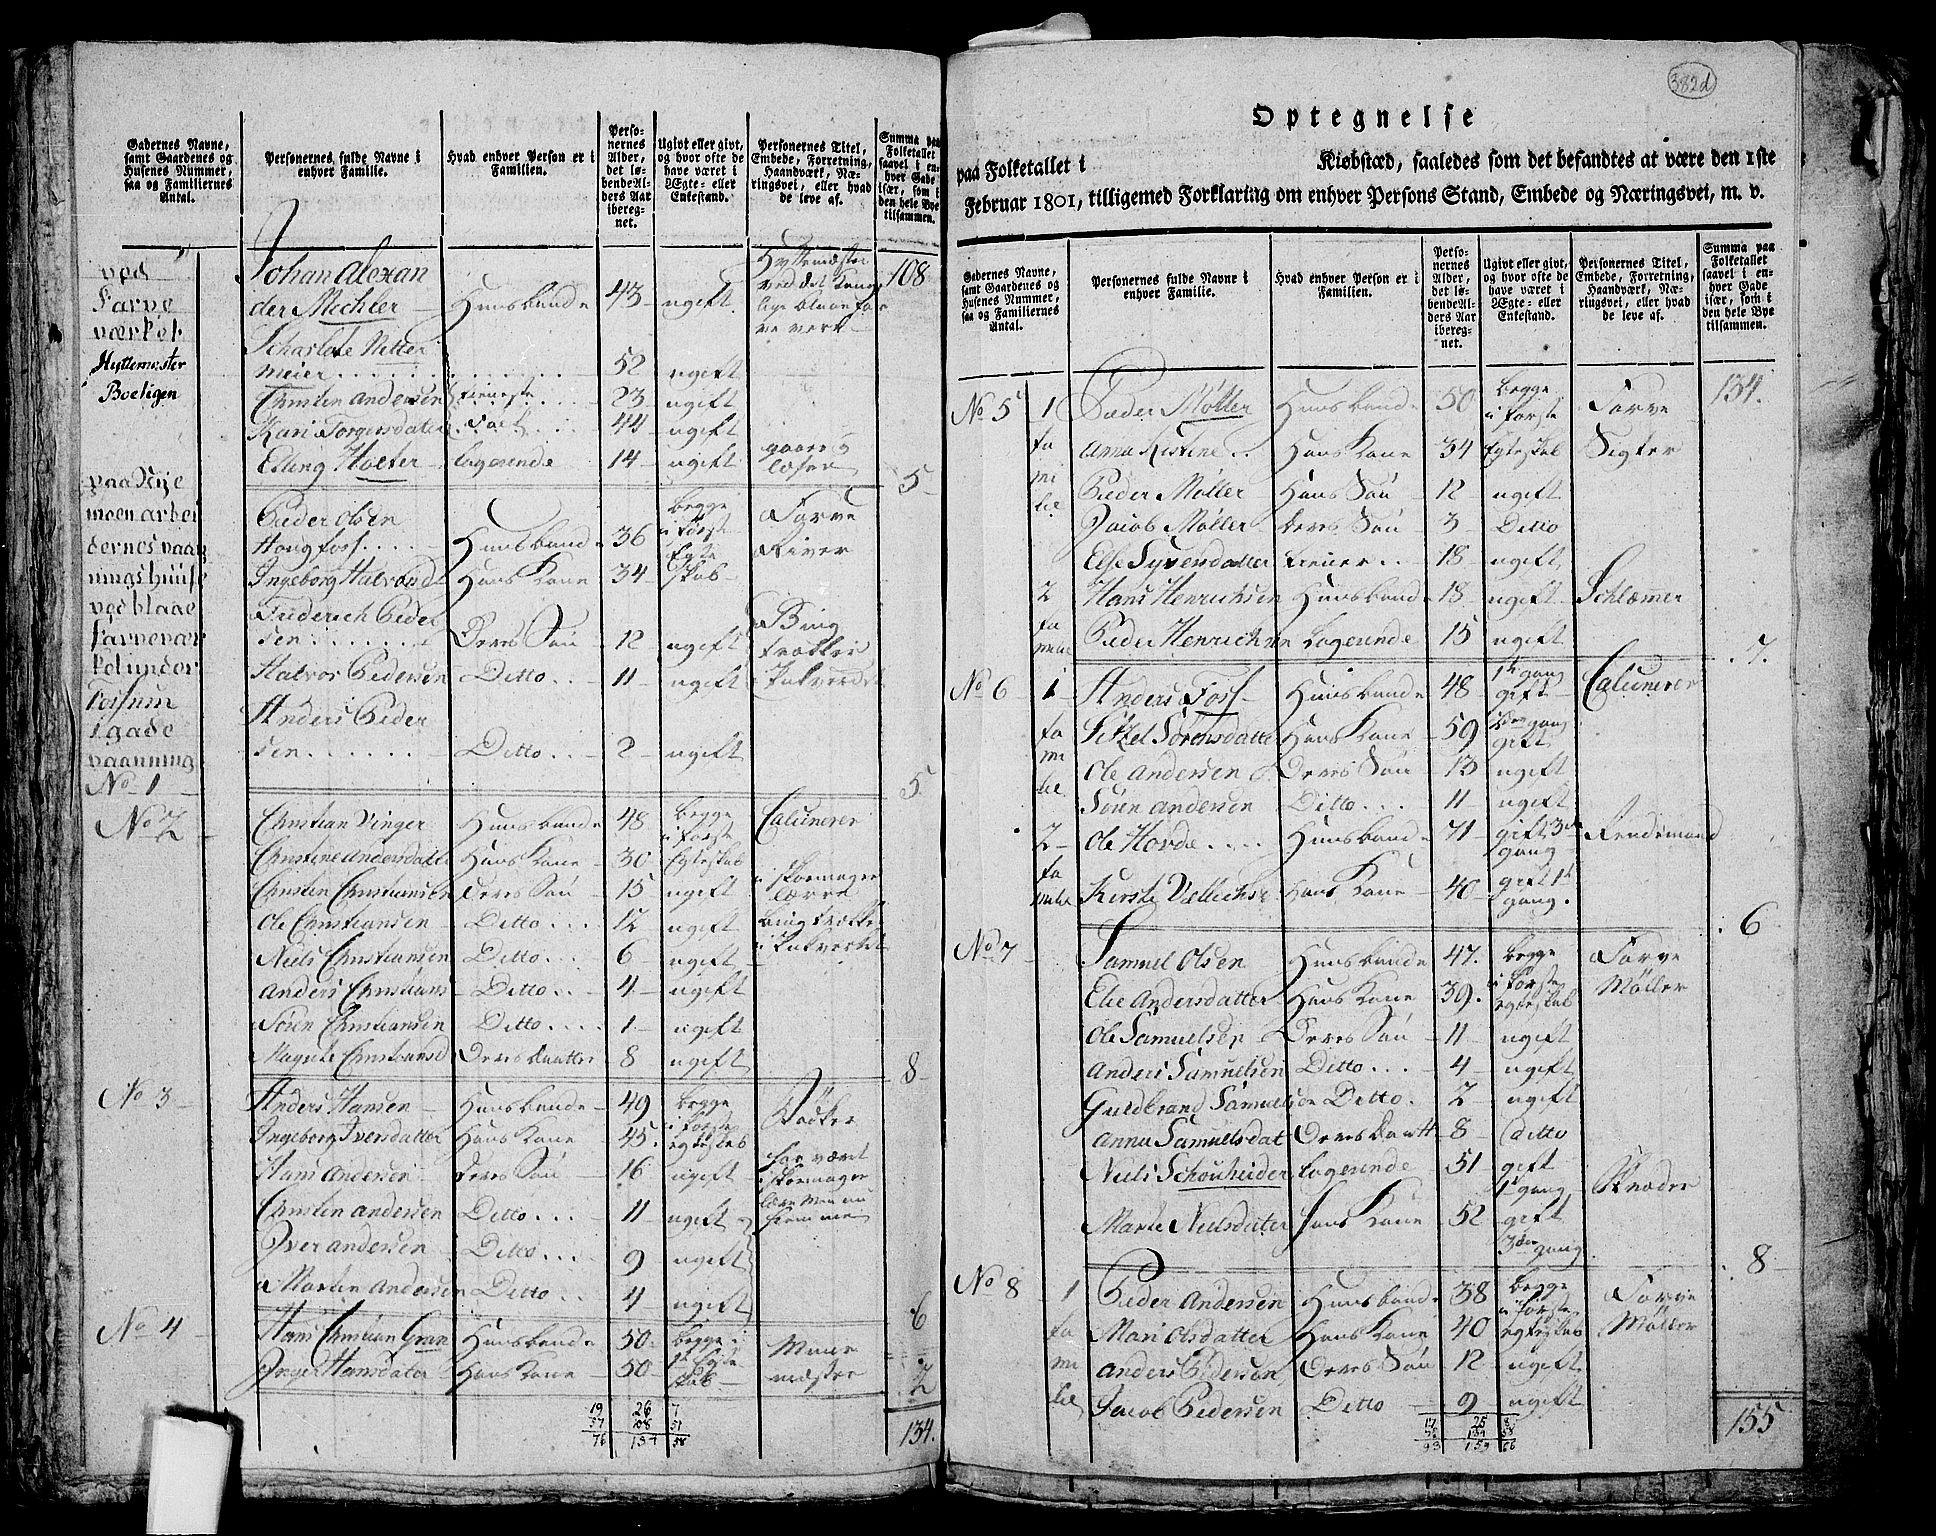 Gadernes Navne, samt Gaardenes og Husenes Nummer, saa og Familiernes Antal.
Personernes fulde Navne i enhver Familie.
Hvad enhver Person er i Familien.
Personernes Alder, det løbende Alders Aar iberegnet.
Ugivt eller givt, og hvor ofte de have været i Ægte- eller Enkestand.
Personernes Titel, Embede, Forretning, Haandværk, Næringsvei, eller hvad de leve af.
Summa paa Folketallet saavel i enhver Gade især, som i den hele Bye tilsammen.
ved Farve værket Hyttemester Boeligen
108
Johan Alexander Mechler Huusbonde 43 ugift Hyttemester ved det Kongelige blaae farve verk
Scharlote Nettermeier 52 ugift
Christen Andersen tieneste 23 ugift
Kari Torgersdatter folk 44 ugift
Erling Holter logerende 14 ugift
5
paa Nye moen arbeidernes vaaningshuuse ved blaae farveværket under Fossum i gade vaanning
No 1
Peder Olsen Hougfoss Huusbonde 36 begge i første Egteskab Farve River
Ingeborg Halvorsd Hans Kone 34
Friderich Pedersen Deres Søn 12 ugift
Halvor Pedersen Ditto 11 ugift i Pukverket
Anders Pedersen Ditto 2 ugift
5
No 2
Christian Vinger Huusbonde 48 begge i første Egteskab Calcinerer
Christine Andersdatter Hans Kone 30
Christen Christiansen Deres Søn 15 ugift i skoemager lærre
Ole Christiansen Ditto 12 ugift i Pukverket
Niels Christiansen Ditto 6 ugift
Anders Christians Ditto 4 ugift
Søren Christiansen Ditto 1 ugift
Magrete Christiansd Deres Daatter 8 ugift
8
No 3
Anders Hansen Huusbonde 49 begge i første egteskab
Ingeborg Iversdatter Hans Kone 45
Hans Andersen Deres Søn 16 ugift har været i skoemager lære men nu hiemme
Christen Andersen Ditto 11 ugift
Iver Andersen Ditto 9 ugift
Martin Andersen Ditto 4 ugift
6
No 4
Hans Christian Gran Huusbonde 50 begge i 1te Egteskab Muur mester
Inger Hansdater Hans Kone 50
2
19 26 7
57 108 51
76 134 58
134.
382d
Optegnelse
paa Folketallet i Kiøbstæd, saaledes som det befandtes at være den 1ste
Februar 1801, tilligemed Forklaring om enhver Persons Stand, Embede og Næringsvei, m. v.
Gadernes Navne, samt Gaardenes og Husenes Nummer, saa og Familiernes Antal.
Personernes fulde Navne i enhver Familie.
Hvad enhver Person er i Familien.
Personernes Alder, det løbende Alders Aar iberegnet.
Ugivt eller givt, og hvor ofte de have været i Ægte- eller Enkestand.
Personernes Titel, Embede, Forretning, Haandværk, Næringsvei, eller hvad de leve af.
Summa paa Folketallet saavel i enhver Gade især, som i den hele Bye tilsammen.
134.
No 5 1 familie
Peder Møller Huusbonde 50 begge i første Egteskab Farve Sigter
Anna Kistine Hans Kone 34
Peder Møller Hans Søn 12 ugift
Jacob Møller Deres Søn 3 Ditto
Else Syversdatter tiener 18 ugift
2 familie
Hans Henrichsen Huusbonde 18 ugift Schlæmer
Peder Henrichsen Logerende 15 ugift
7.
No 6 1 familie
Anders Foss Huusbonde 48 1te gang gift Calcinerer
Sitzel Sørensdatter Hans Kone 59 gang gift
Ole Andersen Deres Søn 13 ugift
Søren Andersen Ditto 11 ugift
2 familie
Ole Hovde Huusbonde 71 gift 3de gang
Kirsti Hans Kone 40 gift 1te gang.
6
No 7
Samuel Olsen Huusbonde 47. begge i første egteskab Farve Møller
Elie Andersdatter Hans Kone 39.
Ole Samuelsen Deres Søn 11 ugift
Anders Samuelsen Ditto 4 ugift
Guldbrand Samuelsen Ditto 2 ugift
Anna Samuelsdat Deres Daatt 8 Ditto
Niels Schouheider Logerende 51 gift 1te gang
Marte Nielsdater Hans Kone 52 gift 3die gang
8
No 8 1 familie
Peder Andersen Huusbonde 38 begge i første egteskab Farve Møller
Mari Olsdatter Hans Kone 40
Anders Pedersen Deres Søn 12 ugift
Jacob Pedersen Ditto 9 ugift
17 25 8
76 134 58
93 159 66
155